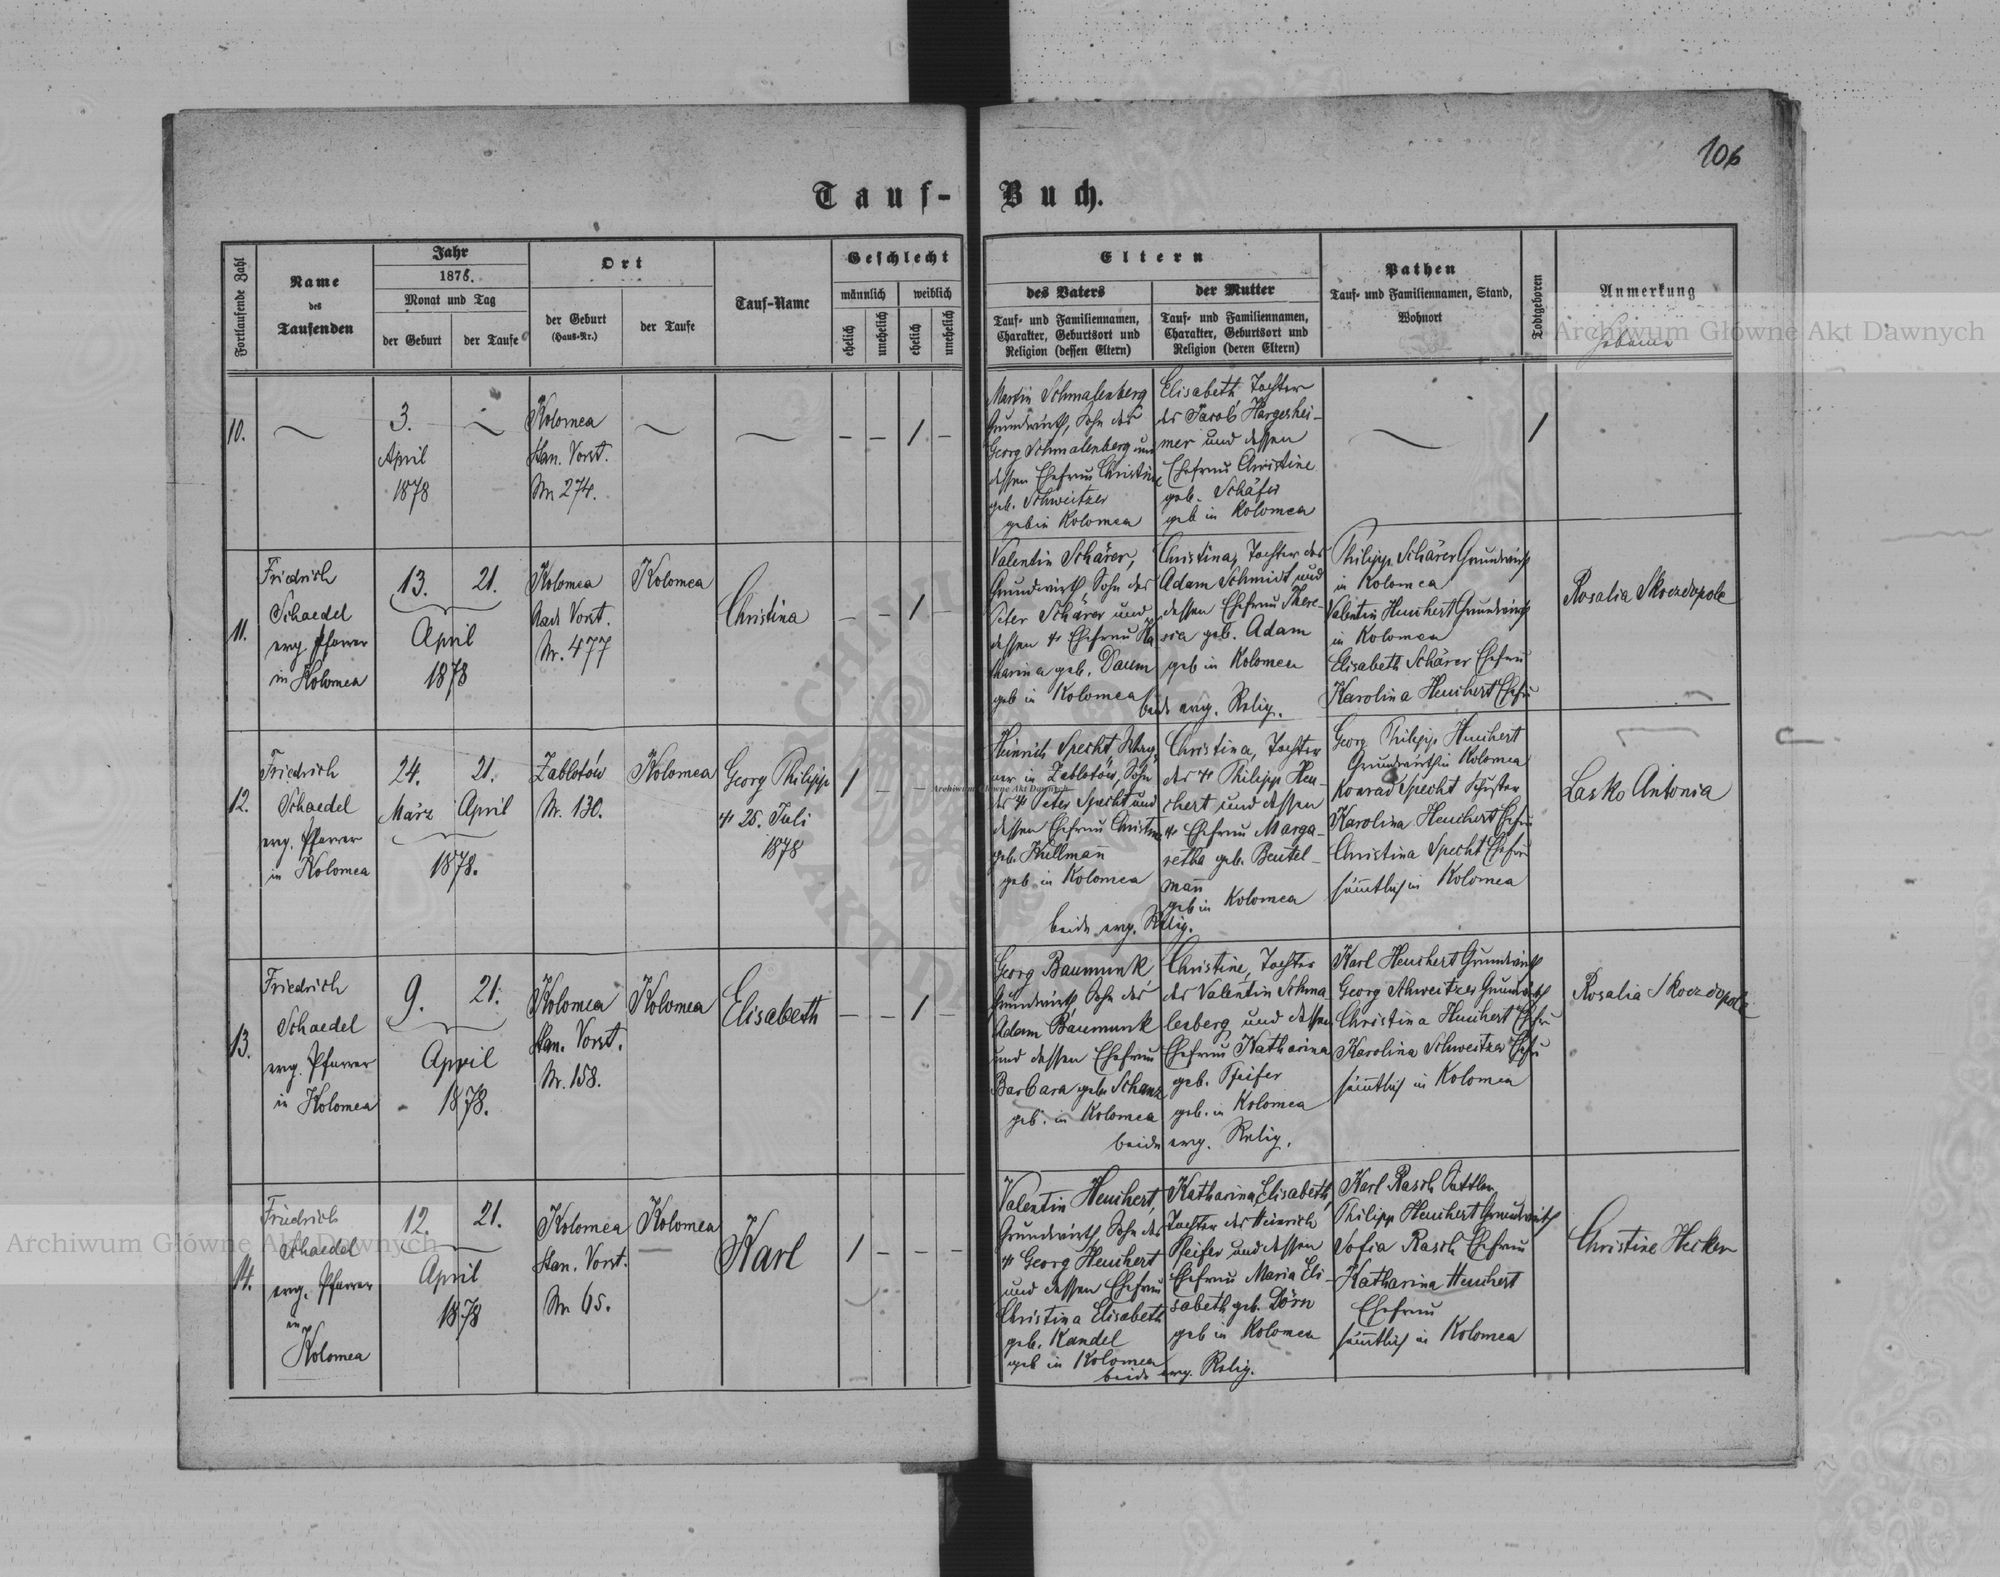 106
Tauf-Buch.
Fortlaufende Zahl
Name
des
Taufenden
Jahr
1878.
Monat und Tag
der Geburt
der Taufe
Ort
der Geburt
(Haus-Nr.)
der Taufe
Tauf-Name
Geschlecht
männlich
weiblich
ehelich
unehelich
ehelich
unehelich
Eltern
des Vaters
Tauf- und Familiennamen,
Charakter, Geburtsort und
Religion (dessen Eltern)
der Mutter
Tauf- und Familiennamen,
Charakter, Geburtsort und
Religion (deren Eltern)
Pathen
Tauf- und Familiennamen, Stand,
Wohnort
Todtgeboren
Anmerkung
Hebamme
10.
3.
April
1878
Kolomea
Stan. Vorst.
Nr. 274.
— — 1 —
Martin Schmalenberg
Grundwirth, Sohn des
Georg Schmalenberg und
dessen Ehefrau Christine
geb. Schweitzer
geb in Kolomea
Elisabeth Tochter
des Jacob Hargeshei-
mer und dessen
Ehefrau Christine
geb. Schäfer
geb in Kolomea
1
11.
Friedrich
Schaedel
evg. Pfarrer
in Kolomea
13. 21.
April
1878
Kolomea
Nad. Vorst.
Nr. 477
Kolomea
Christina
— — 1 —
Valentin Schärer,
Grundwirth, Sohn des
Peter Schärer und
dessen † Ehefrau Ka
tharina geb. Daum
geb in Kolomea
Christina, Tochter des
Adam Schmidt und
dessen Ehefrau There-
sia geb. Adam
geb in Kolomea
beide evg. Relig.
Philipp Schärer Grundwirth
in Kolomea
Valentin Heuchert Grundwirth
in Kolomea
Elisabeth Schärer Ehefrau
Karolina Heuchert Ehefr
Rosalia Skoczdopole
12.
Friedrich
Schaedel
evg. Pfarrer
in Kolomea
24. 21.
März April
1878.
Zablotów
Nr. 130.
Kolomea
Georg Philipp
† 25. Juli
1878
1 — — —
Heinrich Specht
in Zablotów, Sohn
des † Peter Specht und
dessen Ehefrau Christine
geb. Kullmann
geb in Kolomea
Christina, Tochter
des † Philipp Heu-
chert und dessen
† Ehefrau Marga-
retha geb. Beutel-
mann
geb in Kolomea
beide evg. Relig.
Georg Philipp Heuchert
Grundwirth in Kolomea
Konrad Specht Schuster
Karolina Heuchert Ehefr
Christina Specht Ehefr
sämtlich in Kolomea
Lasko Antonia
13.
Friedrich
Schaedel
evg. Pfarrer
in Kolomea
9. 21.
April
1878.
Kolomea
Stan. Vorst.
Nr. 158.
Kolomea
Elisabeth
— — 1 —
Georg Baumunk
Grundwirth Sohn des
Adam Baumunk
und dessen Ehefrau
Barbara geb. Schanz
geb. in Kolomea
Christine, Tochter
des Valentin Schma-
lenberg und dessen
Ehefrau Katharina
geb. Pfeifer
geb. in Kolomea
beide evg. Relig.
Karl Heuchert Grundwirth
Georg Schweitzer Grundwirth
Christina Heuchert Ehefr
Karolina Schweitzer Ehefr
sämtlich in Kolomea
Rosalia Skoczdopole
14.
Friedrich
Schaedel
evg. Pfarrer
in
Kolomea
12. 21.
April
1878
Kolomea
Stan. Vorst.
Nr 65.
Kolomea
Karl
1 — — —
Valentin Heuchert,
Grundwirth, Sohn des
† Georg Heuchert
und dessen Ehefrau
Christina Elisabeth
geb. Kandel
geb in Kolomea
Katharina Elisabeth,
Tochter des Heinrich
Pfeifer und dessen
Ehefrau Maria Eli-
sabeth geb. Dörn
geb in Kolomea
beide evg. Relig.
Karl Rasch Sattler
Philipp Heuchert Grundwirth
Sofia Rasch Ehefrau
Katharina Heuchert
Ehefrau
sämtlich in Kolomea
Christine Hecker
Archiwum Główne Akt Dawnych
Archiwum Główne Akt Dawnych
Archiwum Główne Akt Dawnych